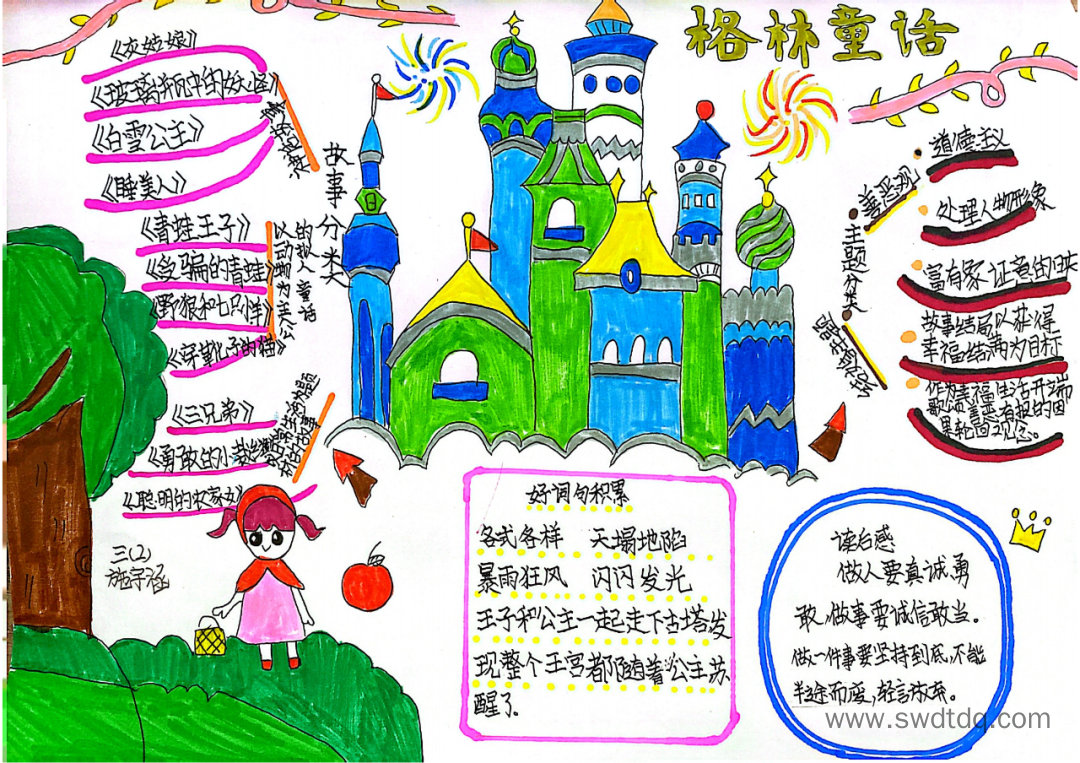 格林童话
《灰姑娘》
《玻璃瓶中的妖怪》
《白雪公主》
《睡美人》
《青蛙王子》
《受骗的青蛙》
《野狼和七只羊》
《穿靴子的猫》
以动物为主人公
的拟人童话
《三兄弟》
《勇敢的小裁缝》
《聪明的农家女》
故事分类
主题分类
善恶观
道德主义
处理人物形象
富有象征意的归来
故事结局以获得
幸福结满为目标
作为幸福生活开端
歌颂善恶有报的因
果轮回观念。
好词句积累
各式各样 天塌地陷
暴雨狂风 闪闪发光
王子和公主一起走下古塔发
现整个王宫都随着公主苏
醒了.
读后感
做人要真诚勇
敢,做事要诚信敢当。
做一件事要坚持到底,不能
半途而废,轻言放弃。
三(2)
www.swdtdq.com